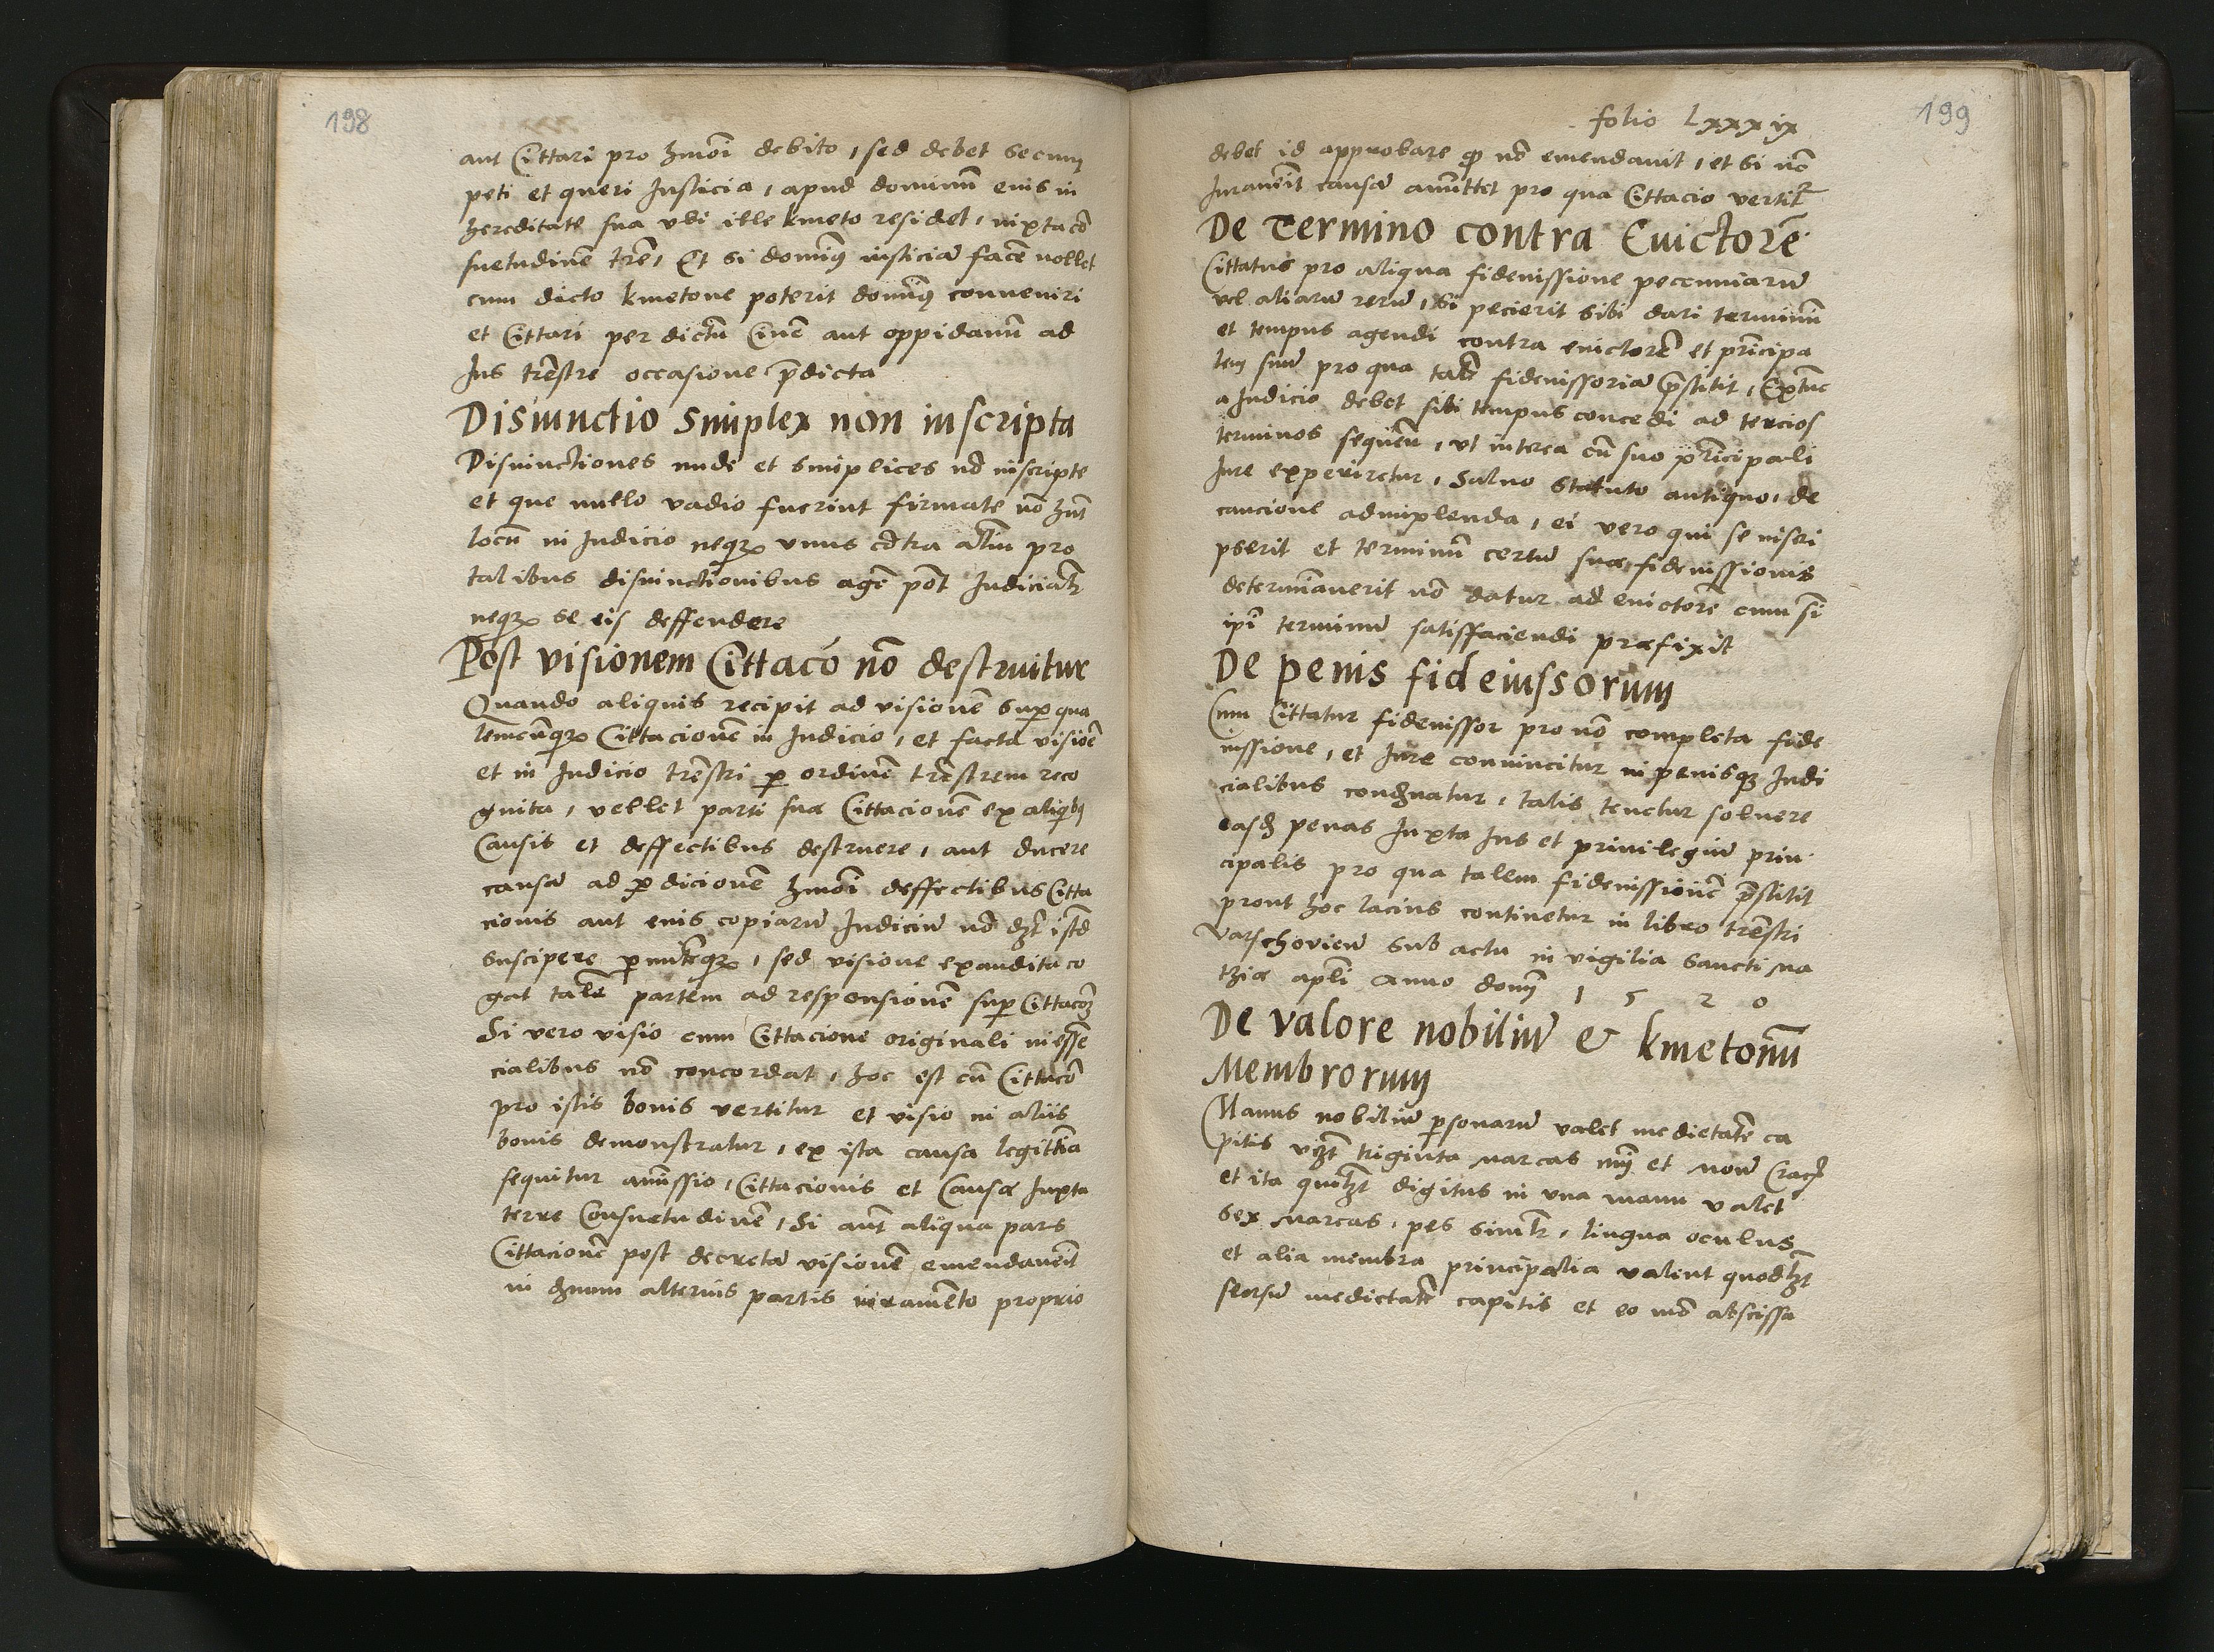 198
aut Cittari pro hmōi debito, sed debet secum
peti et queri Justicia, apud dominū eius in
hereditate sua vbi ille kmeto residet, iuxta cō
suetudinē trē, Et si dominꝰ iusticiā facē nollet
cum dicto kmetone poterit dominꝰ conueniri
et Cittari per dictū Ciuē aut oppidanū ad
Jus trēstre occasione p̄dicta
Disiunctio Simplex non inscripta
Disiunctiones nude et simplices nō inscripte
et que nullo vadio fuerint firmate nō hn̄t
locū in Judicio neqꝫ vnus cōtra aliū pro
talibus disiunctionibus agē pōt Judicialr̄
neqꝫ se eis deffendere
Post visionem Cittacō nō destruitur
Quando aliquis recipit ad visionē suꝑ qua
lemcūqꝫ Cittacionē in Judicio, et facta visiōe
et in Judicio trēstri ꝑ ordinē trēstrem reco
gnita, vellet parti suæ Cittacionē ex aliqibꝫ
Causis et deffectibus destruere, aut ducere
causā ad ꝑdicionē hmōi deffectibus Citta
cionis aut eius copiarū Judiciū nō dꝫt istō
suscipere ꝑmittereqꝫ, sed visione exaudita co
gat talē partem ad responsionē suꝑ Cittacōꝫ
Si vero visio cum Cittacione originali in essē
cialibus nō concordat, hoc est cū Cittacō
pro istis bonis vertitur et visio in aliis
bonis demonstratur, ex ista causa legittīa
sequitur amissio, Cittacionis et Causæ Juxta
terre Consuetudinē, Si aūt aliqua pars
Cittacionē post decretā visionē emendauēit
in dꝫnum alterius partis iuramēto proprio
folio Lxxxix
199
debet id approbare ꝙ nō emendauit, et si nō
Jurauēit causā amittet pro qua Cittacio vertitʳ
De Termino contra Euictorē
Cittatus pro aliqua fideiussione peccuniarū
vel aliarū rerū, si pecierit sibi dari terminū
et tempus agendi contra euictorē et prīcipa
lem suū pro qua talē fideiussoriā p̄stitit, Extūc
a Judicio debet sibi tempus concedi ad tercios
terminos sequēn, vt interea cū suo prīcipali
Jure experiretur, Saluo Statuto antiquo, de
caucione adimplenda, ei vero qui se inscri
pserit et terminū certū suæ fideiussionis
determīauerit nō datur ad euictorē cum sī
ipī terminū satisfaciendi præfixit
De penis fideiussorum
Cum Cittatur fideiussor pro nō completa fide
iussione, et Jure conuincitur in penisqꝫ Judi
cialibus condꝫnatur, talis tenetur soluere
easdꝫ penas Juxta Jus et priuilegiū prin
cipalis pro qua talem fideiussionē p̄stitit
prout hoc lacius continetur in libro trēstri
Varschouien̄ sub actu in vigilia Sancti Ma
thiæ apl̄i Anno domī 1 5 2 0
De valore nobiliū & kmetonū
Membrorum
Manus nobiliū ꝑsonarū valet medietatē ca
pitis vꝫt triginta marcas nūi et mon̄ Crac̄
et ita qui lꝫt digitus in vna manu valet
sex marcas, pes similr̄, lingua oculus
et alia membra principalia valent quodlꝫt
seorsū medietatē capitis et eo mō abscissa